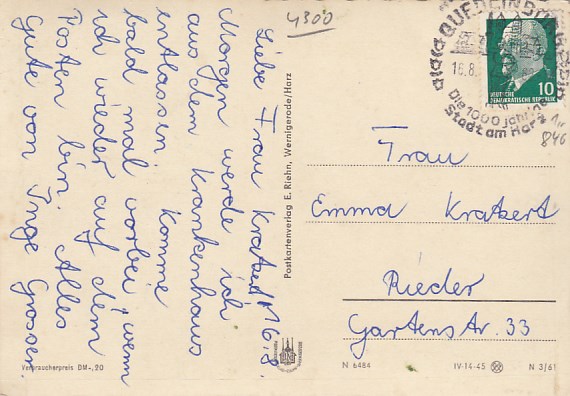 4300
Liebe Frau Kratzert! 16.8.
Morgen werde ich
aus dem Krankenhaus
entlassen. Komme
bald mal vorbei, wenn
ich wieder auf dem
Posten bin. Alles
Gute von Inge Grosser
Postkartenverlag E. Riehn, Wernigerode/Harz
QUEDLINBURG
16.8.
Die 1000 jährige
Stadt am Harz
10
DEUTSCHE
DEMOKRATISCHE REPUBLIK
846
Frau
Emma Kratzert
Rieder
Gartenstr. 33
Verbraucherpreis DM -,20
N 6484
IV-14-45
N 3/61